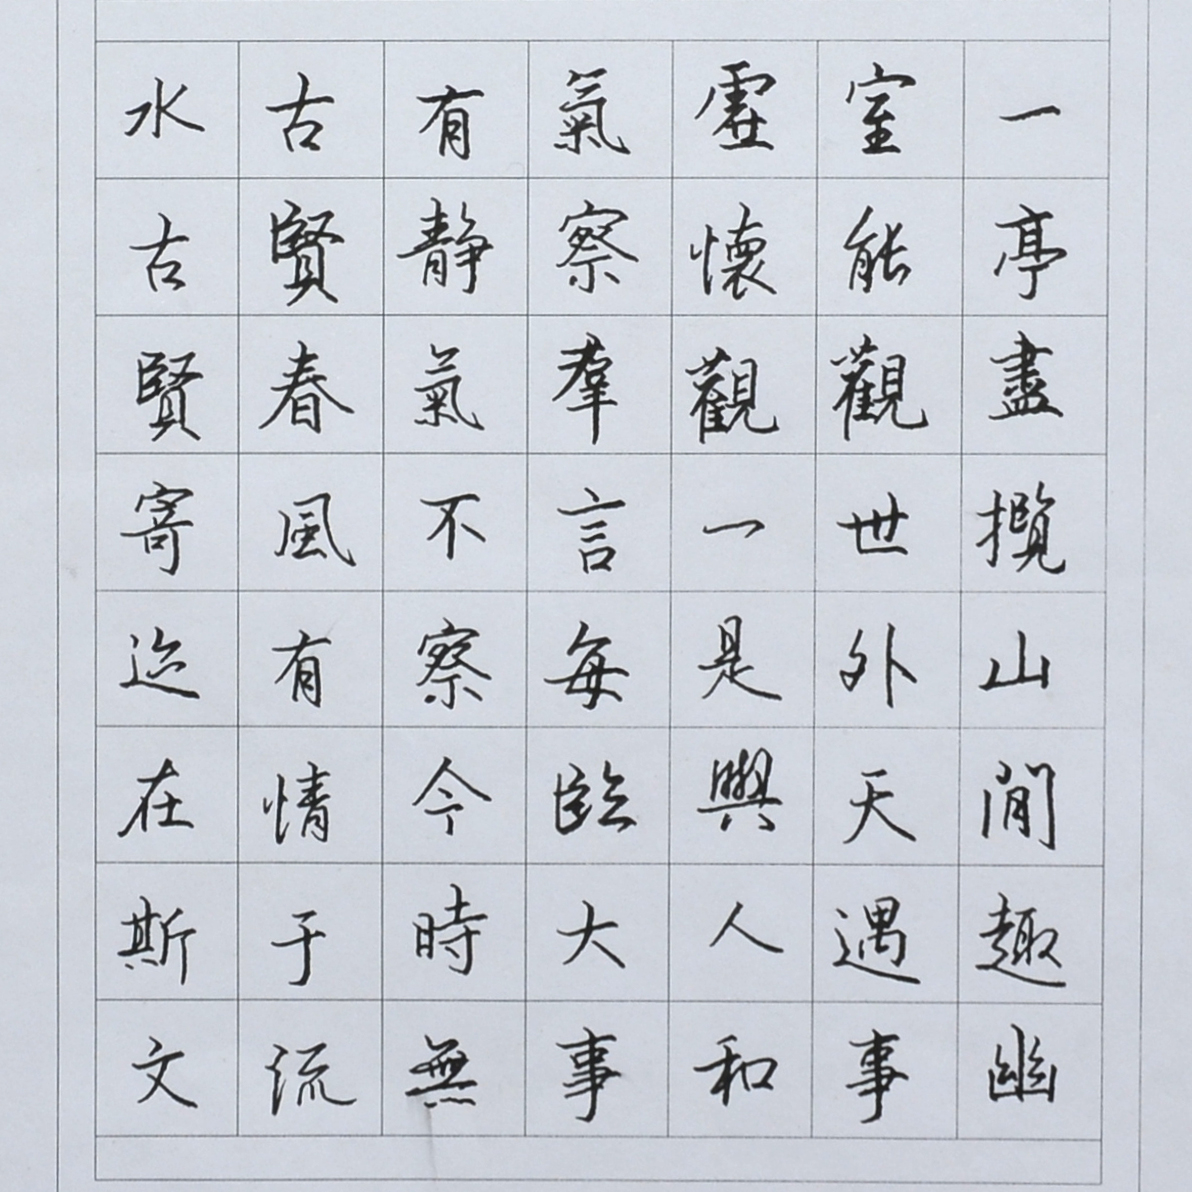 一亭盡攬山間趣幽
室能觀世外天遇事
虛懷觀一是與人和
氣察羣言每臨大事
有静氣不察今時無
古賢春風有情于流
水古賢寄迹在斯文